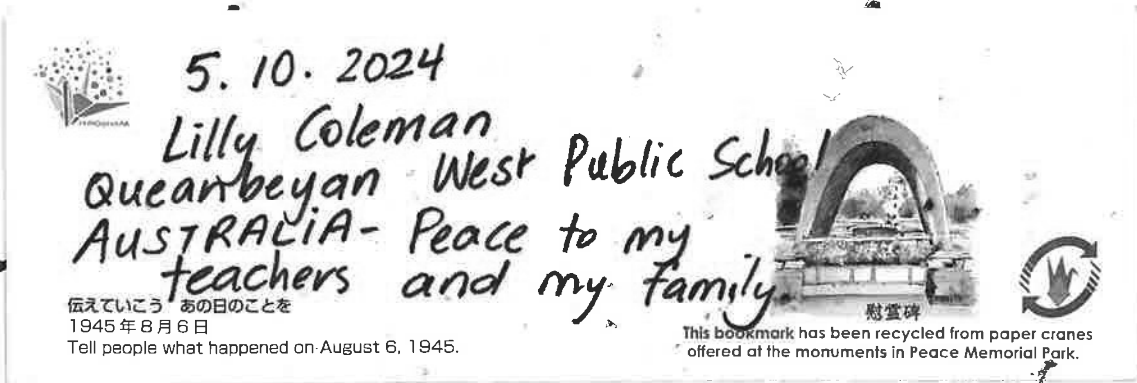 5.10.2024
Lilly Coleman
Queanbeyan West Public School
AUSTRALIA- Peace to my
teachers and my family.
HIROSHIMA
伝えていこう あの日のことを
1945年8月6日
Tell people what happened on August 6, 1945.
慰霊碑
This bookmark has been recycled from paper cranes
offered at the monuments in Peace Memorial Park.